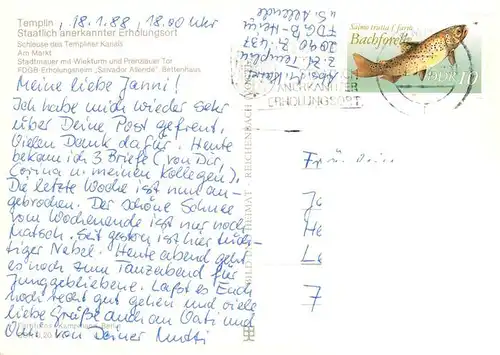 Templin, 18.1.88, 18.00 Uhr
Staatlich anerkannter Erholungsort
Schleuse des Templiner Kanals
Am Markt
Stadtmauer mit Wiekturm und Prenzlauer Tor
FDGB-Erholungsheim „Salvador Allende“, Bettenhaus
Meine liebe Janni!
Ich habe mich wieder sehr
über Deine Post gefreut.
Vielen Dank dafür. Heute
bekam ich 3 Briefe (von Dir,
Corina u. meinen Kollegen).
Die letzte Woche ist nun an-
gebrochen. Der schöne Schnee
vom Wochenende ist nur noch
Matsch. Seit gestern ist hier
tiger Nebel. Heute abend geht
es noch zum Tanzabend für
Junggebliebene. Laßt es Euch
noch recht gut gehen und viele
liebe Grüße auch an Vati und
Omi von Deiner Mutti
BILD UND HEIMAT REICHENBACH
Absid. Kant
2. Zt. Templin
2090
FDGB-Heim
"S. Allende"
ANERKANNTER
ERHOLUNGSORT
Salmo trutta f. fario
Bachforelle
DDR 10